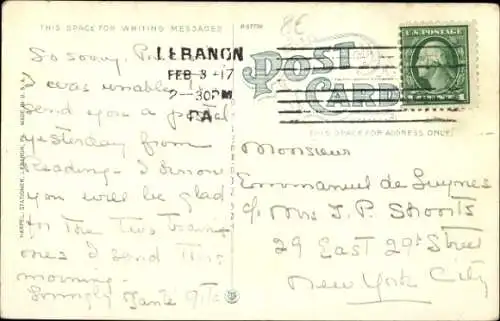 THIS SPACE FOR WRITING MESSAGES
P-57734
LEBANON
FEB 3-17
2-30PM
PA
POST
CARD
U.S. POSTAGE
THIS SPACE FOR ADDRESS ONLY
HARPEL, STATIONER, LEBANON, PA.
MADE IN U.S.A.
So sorry,
I was unable to
send you a postal
yesterday from
Reading - I know
you will be glad
for the two
ones I send this
morning -
Lovingly Tante
Monsieur
Emmanuel de Luynes
c/o Mrs J. P. Shoots
29 East 29th Street
New York City